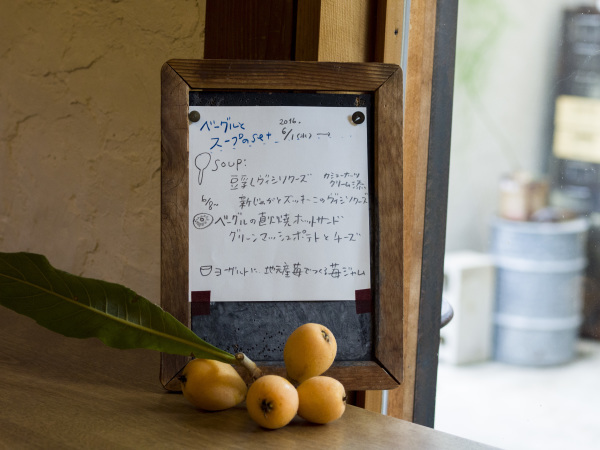 ベーグルと
スープのset
2016.
6/1(水)→
SOUP:
豆乳ヴィシソワーズ
クリーム添
6/8~ 新じゃがとズッキーニのヴィシソワーズ
ベーグルの直火焼ホットサンド
グリーンマッシュポテトとチーズ
ヨーグルトに地元産苺でつくる苺ジャム